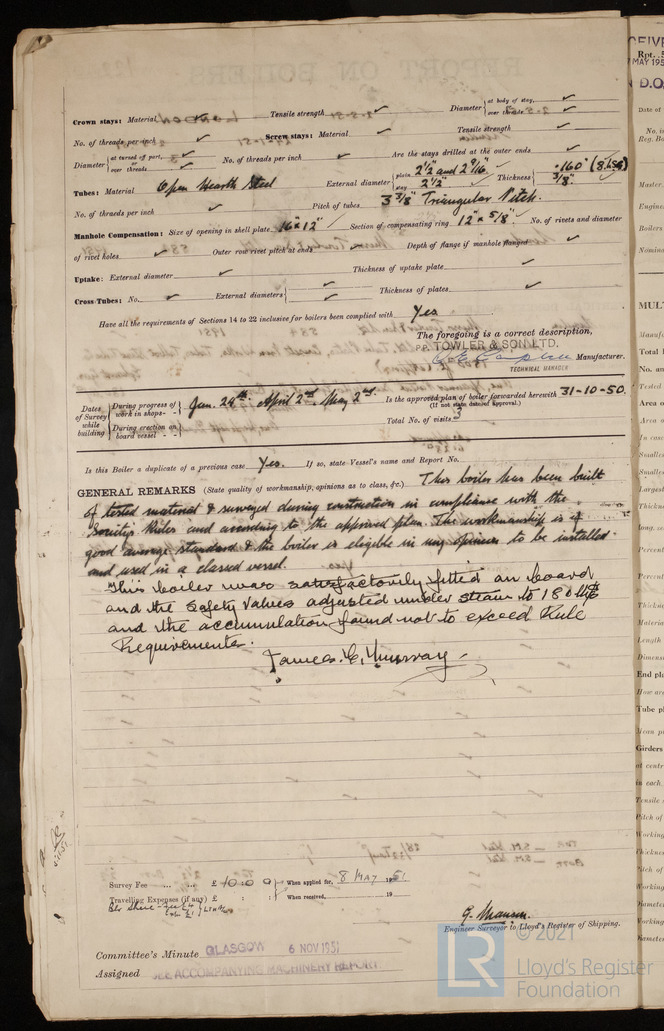 Crown stays: Material ✓ Tensile strength ✓ Diameter { at body of stay, ✓ over threads ✓
No. of threads per inch ✓ Screw stays: Material ✓ Tensile strength ✓
Diameter { at turned off part, or over threads ✓ No. of threads per inch ✓ Are the stays drilled at the outer ends ✓
Tubes: Material Open Hearth Steel External diameter { plain 2½" and 2 9/16" stay 2½" Thickness { .160" (8 LSG) 3/8"
No. of threads per inch ✓ Pitch of tubes 3 3/8" Triangular Pitch.
Manhole Compensation: Size of opening in shell plate 16" x 12" Section of compensating ring 12" x 5/8" No. of rivets and diameter
of rivet holes ✓ Outer row rivet pitch at ends ✓ Depth of flange if manhole flanged ✓
Uptake: External diameter ✓ Thickness of uptake plate ✓
Cross Tubes: No. ✓ External diameters { ✓ Thickness of plates ✓
Have all the requirements of Sections 14 to 22 inclusive for boilers been complied with Yes
The foregoing is a correct description,
P.P. TOWLER & SON LTD.
Manufacturer.
TECHNICAL MANAGER
Dates of Survey while building { During progress of work in shops - - } Jan. 24th April 2nd May 2nd. Is the approved plan of boiler forwarded herewith 31-10-50.
(If not state date of approval.)
{ During erection on board vessel - - - } Total No. of visits 3
Is this Boiler a duplicate of a previous case Yes. If so, state Vessel's name and Report No.
GENERAL REMARKS (State quality of workmanship, opinions as to class, &c.) This boiler has been built
of tested material & surveyed during construction in compliance with the
Society's Rules and according to the approved plan. The workmanship is of
good average standard & the boiler is eligible in my opinion to be installed
and used in a classed vessel.
This boiler was satisfactorily fitted on board
and the safety valves adjusted under steam to 180 lbs
and the accumulation found not to exceed Rule
Requirements.
James. C. Murray.
Survey Fee ... ... £ 10 : 0 : 0 When applied for, 8 MAY 1951
Travelling Expenses (if any) £ : : When received, 19
G. Manson.
Engineer Surveyor to Lloyd's Register of Shipping.
Committee's Minute GLASGOW 6 NOV 1951
Assigned SEE ACCOMPANYING MACHINERY REPORT
LR
© 2021
Lloyd's Register
Foundation